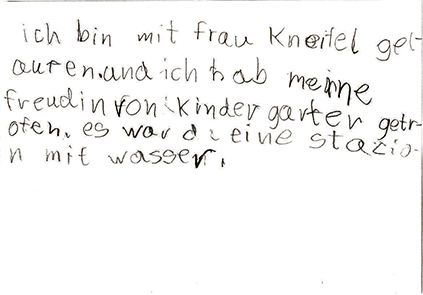 ich bin mit frau Kneifel gel-
aufen.und ich hab meine
freudin von Kindergarten getr-
ofen. es war da eine stazio-
n mit wasser.